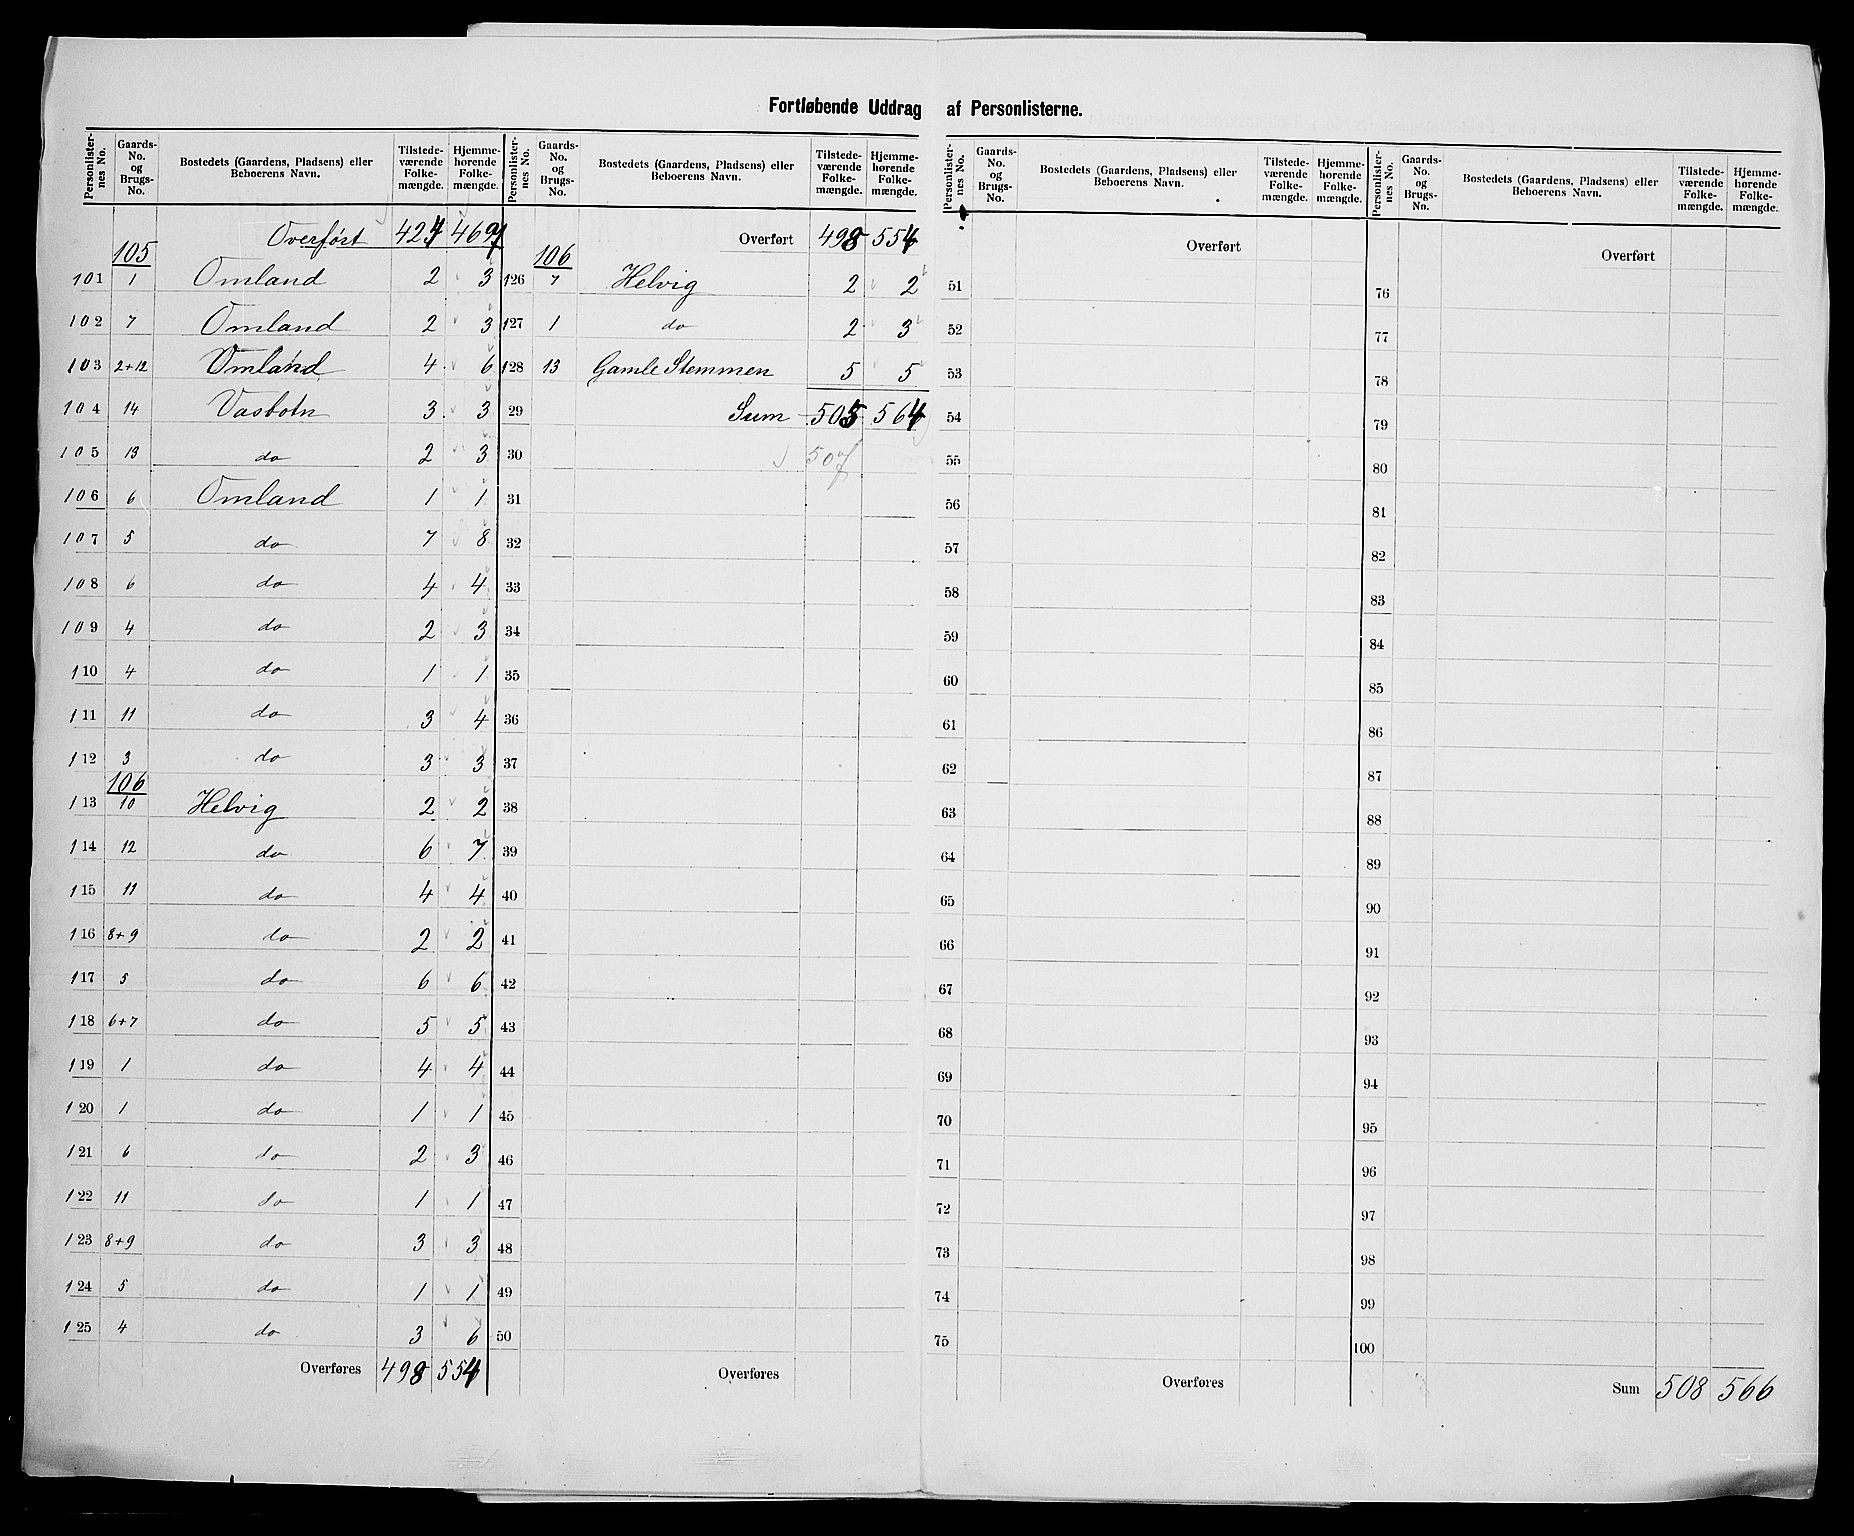 Fortløbende Uddrag af Personlisterne.
Personlister-nes No. Gaards-No. og Brugs-No. Bostedets (Gaardens, Pladsen) eller Beboerens Navn. Tilstede-værende Folke-mængde. Hjemme-hørende Folke-mængde.
Overført 424 469
105
101 1 Omland 2 3
102 7 Omland 2 3
103 2+12 Omland 4 6
104 14 Vasbotn 3 3
105 13 do 2 3
106 6 Omland 1 1
107 5 do 7 8
108 6 do 4 4
109 4 do 2 3
110 4 do 1 1
111 11 do 3 4
112 3 do 3 3
106
113 10 Helvig 2 2
114 12 do 6 7
115 11 do 4 4
116 8+9 do 2 2
117 5 do 6 6
118 6+7 do 5 5
119 1 do 4 4
120 1 do 1 1
121 6 do 2 3
122 11 do 1 1
123 8+9 do 3 3
124 5 do 1 1
125 4 do 3 6
Overføres 498 554
Personlister-nes No. Gaards-No. og Brugs-No. Bostedets (Gaardens, Pladsens) eller Beboerens Navn. Tilstede-værende Folke-mængde. Hjemme-hørende Folke-mængde.
Overført 498 554
106
126 7 Helvig 2 2
127 1 do 2 3
128 13 Gamle Stemmen 5 5
29 Sum 505 564
30 507
31
32
33
34
35
36
37
38
39
40
41
42
43
44
45
46
47
48
49
50
Overføres
Personlister-nes No. Gaards-No. og Brugs-No. Bostedets (Gaardens, Pladsens) eller Beboerens Navn. Tilstede-værende Folke-mængde. Hjemme-hørende Folke-mængde.
Overført
51
52
53
54
55
56
57
58
59
60
61
62
63
64
65
66
67
68
69
70
71
72
73
74
75
Overføres
Personlister-nes No. Gaards-No. og Brugs-No. Bostedets (Gaardens, Pladsens) eller Beboerens Navn. Tilstede-værende Folke-mængde. Hjemme-hørende Folke-mængde.
Overført
76
77
78
79
80
81
82
83
84
85
86
87
88
89
90
91
92
93
94
95
96
97
98
99
100
Sum 508 566